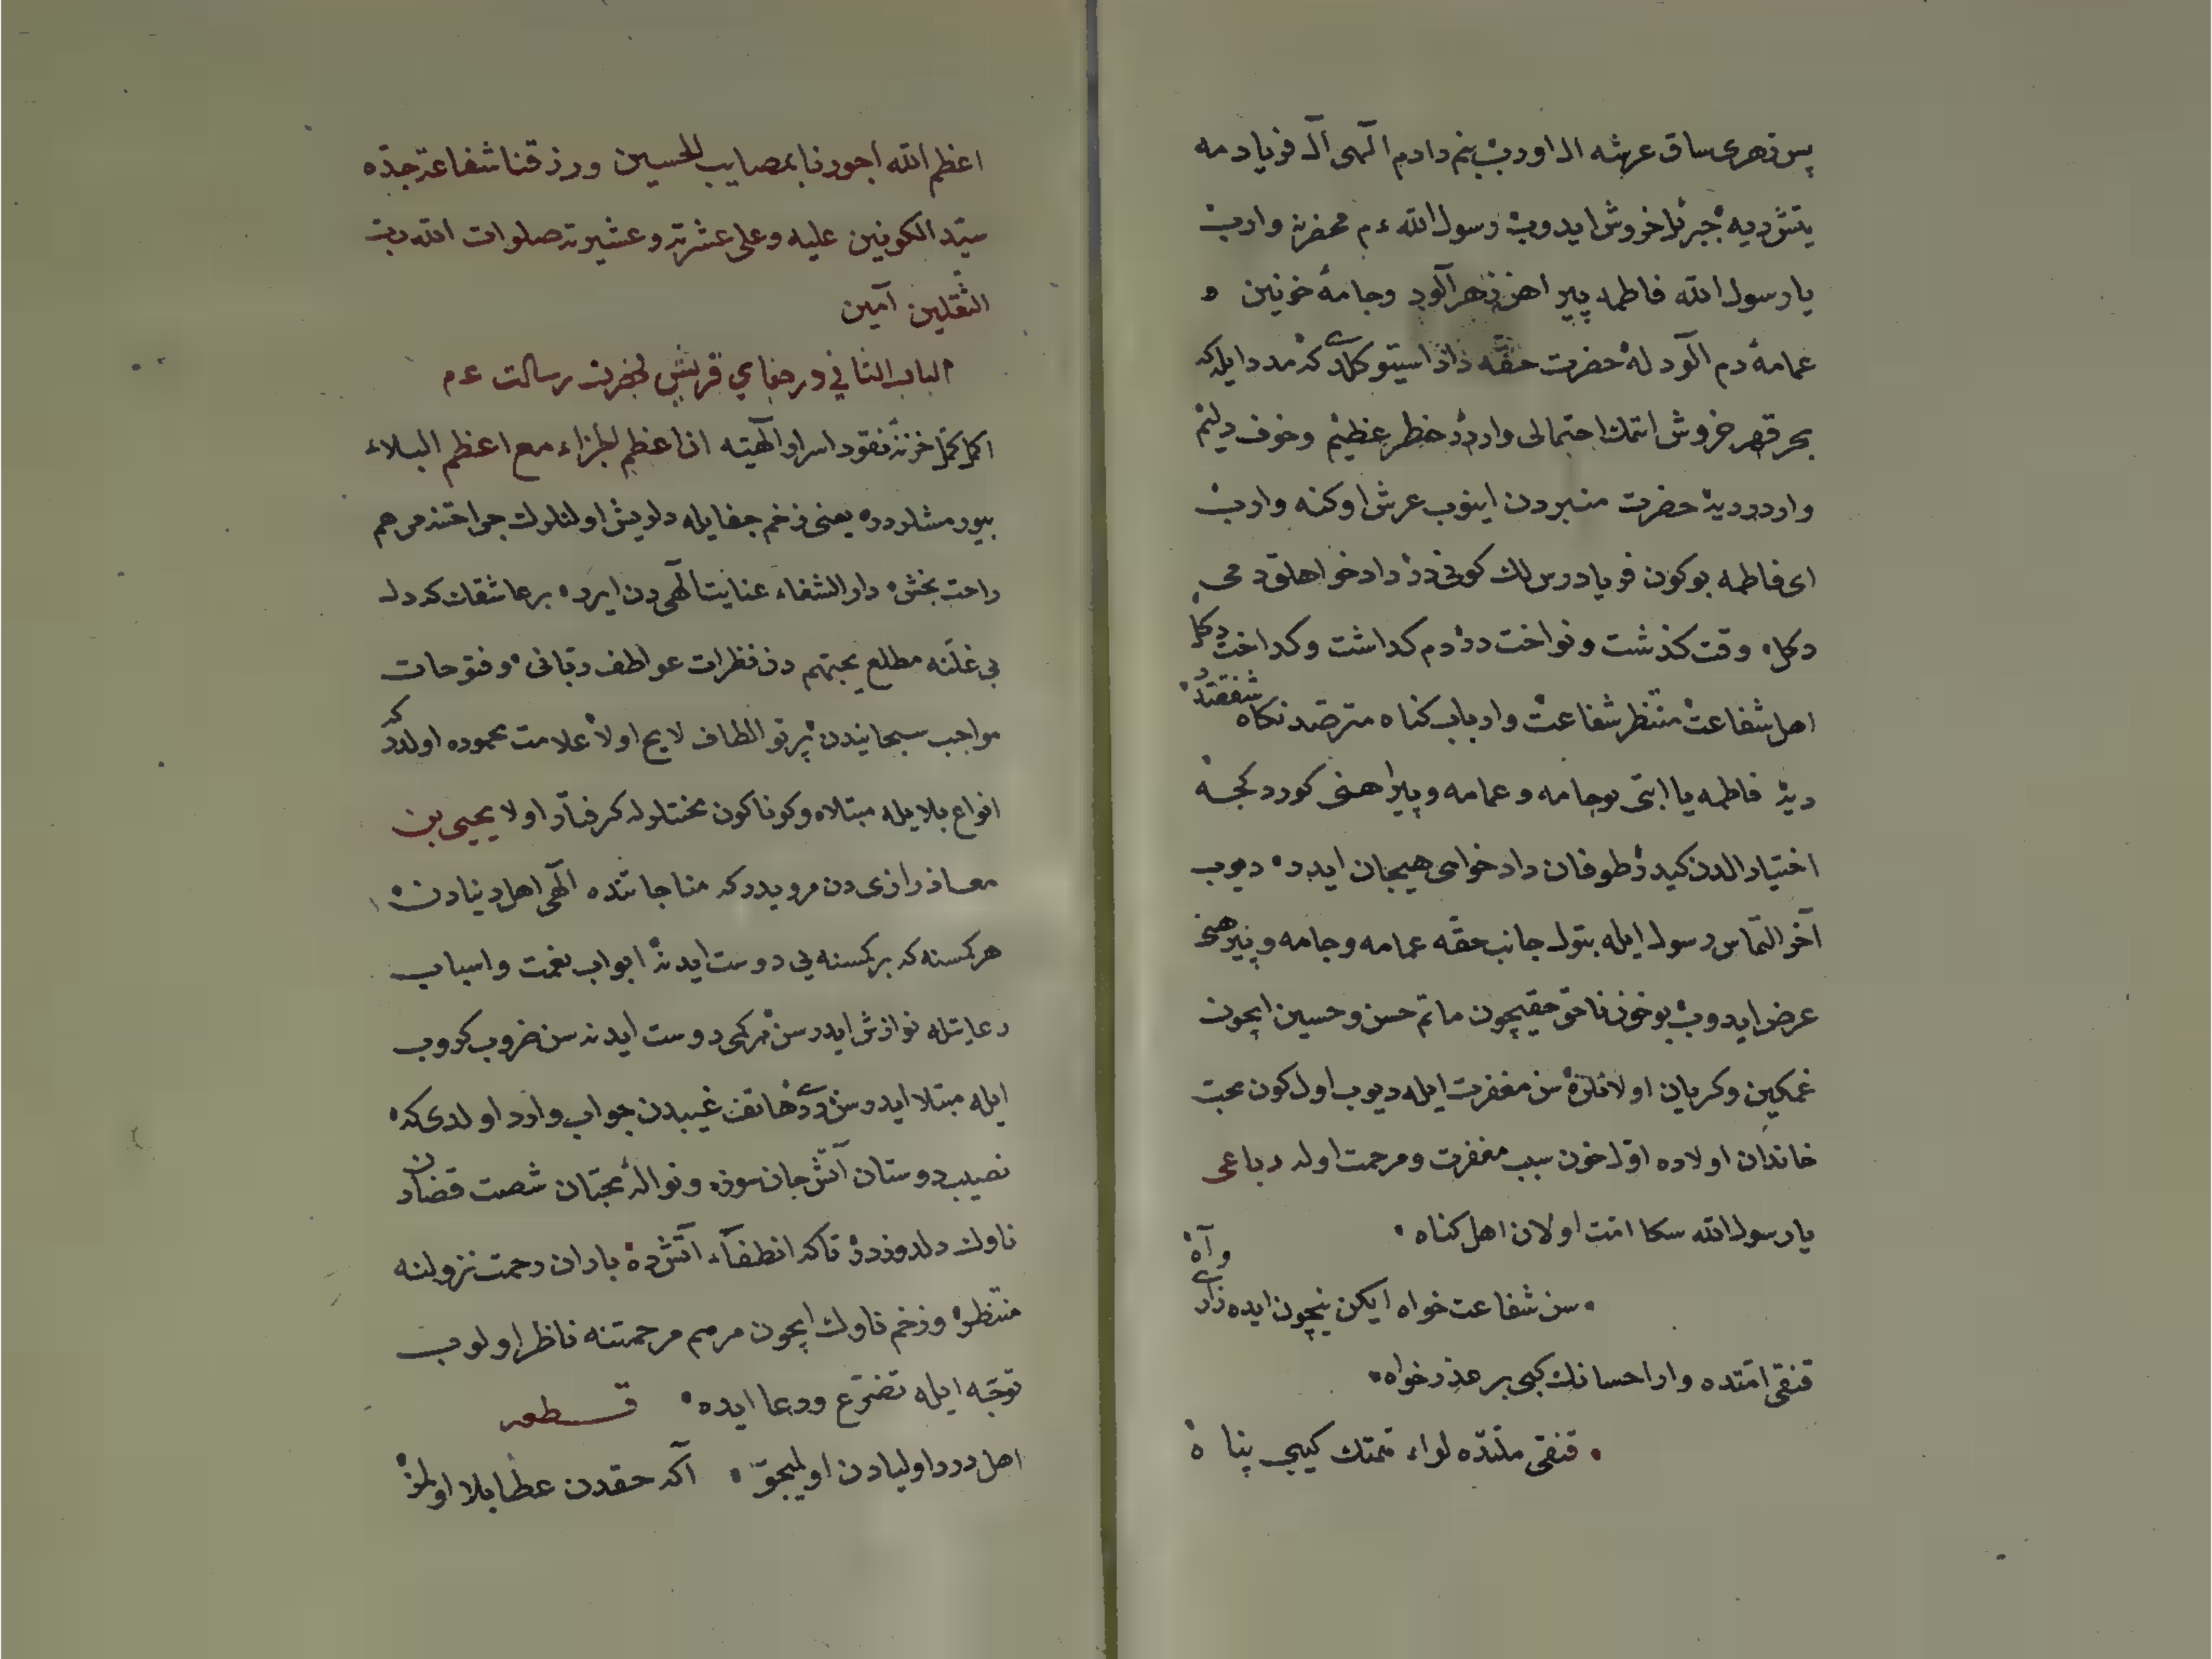 پس زهری ساق عرشه ال اوروب بنم دادم الهی آل فریادمه
یتش دیه جبرئل خروش ایدوب رسول الله ءم محضرنه واروب
یا رسول الله فاطمه پیراهن زهرآلود وجامهٔ خونین و
عمامهٔ دم آلود له حضرت حقه داد استیو کلدی کر مدد ایله که
بحر قهر خروش اتمك احتمالی واردر خطر عظیم وخوف
واردر دیه حضرت منبردن اینوب عرش اوکنه واروب
ای فاطمه بوکون فریادرس لك کونی در دادخواهلق دمی
دکل وقت کذشت ونواخت در دم کداشت وکداخت دکل
اهل شفاعت منتظر شفاعت وارباب کناه مترصد نکاه شفقتدر
دیه فاطمه یا ابتی بو جامه وعمامه وپیراهنی کوردکجه
اختیار الدن کیدر طوفان دادخواهی هیجان ایدر دیوب
آخر التماس رسول ایله بتول جانب حقه عمامه وجامه وپیرهنی
عرض ایدوب بو خون ناحق حقیچون ماتم حسن وحسین ایچون
غمکین وکریان اولانلره سن مغفرت ایله دیوب اول کون محبت
خاندان اولاده اول خون سبب مغفرت ومرحمت اوله رباعی
یا رسول الله سکا امت اولان اهل کناه
سن شفاعت خواه ایکن نیچون ایده زاری وآه
قنقی امتده وار احسانك کبی بر عذرخواه
قنقی ملتده لواء همتك کیبی پناه
اعظم الله اجورنا بمصایب الحسین ورزقنا شفاعة جده
سید الکونین علیه وعلی عشرته وعشیرته صلوات الله رب
الثقلین آمین
الباب الثانی در جفای قریش بحضرت رسالت ءم
اکمل خزنهٔ نقود اسرار الهیه ان اعظم الجزاء مع اعظم البلاء
بیورمشلردر یعنی زخم جفایله دلریش اولنلرك جراحتنه مرهم
راحت بخش دار الشفاء عنایت الهی دن ایرر بر عاشقك که دل
بی غلنه مطلع یحبهم دن نظرات عواطف ربانی وفتوحات
مواجب سبحانیدن پرتو الطاف لایح اولا علامت محموده اولدر که
انواع بلایله مبتلا وکوناکون محنتلره کرفتار اولا یحیی بن
معاذ رازی دن مرویدر که مناجاتنده الهی اهل دنیادن
هر کمسنه که بر کمسنه یی دوست ایدنه ابواب نعمت واسباب
رعایتله نوازش ایدر سن هرکمی دوست ایدنه سن ضروب کروب
ایله مبتلا ایدرسن دیدی هاتف غیبدن جواب وارد اولدی که
نصیب دوستان آتش جان سوز ونوالهٔ محبان شصت قضادن
ناوك دلدوزدر تا که انطفاء آتشده باران رحمت نزولنه
منتظر وزخم ناوك ایچون مرهم مرحمتنه ناظر اولوب
توجه ایله تضرع ودعا ایده قطعه
اهل درد اولیادن اولیجق اکه حقدن عطا بلا اولمز